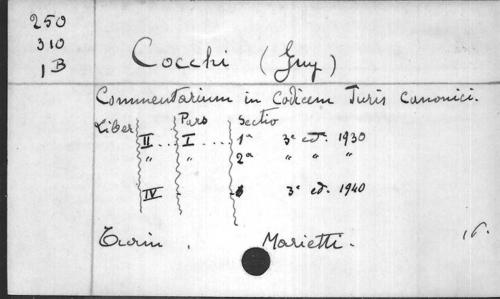 250
310
1B
Cocchi (Guy)
Commentarium in Codicem Juris Canonici.
Liber Pars Sectio
II .... I ..... 1a 3e ed. 1930
" " 2a " " "
IV 3e ed. 1940
Turin . Marietti. 16.